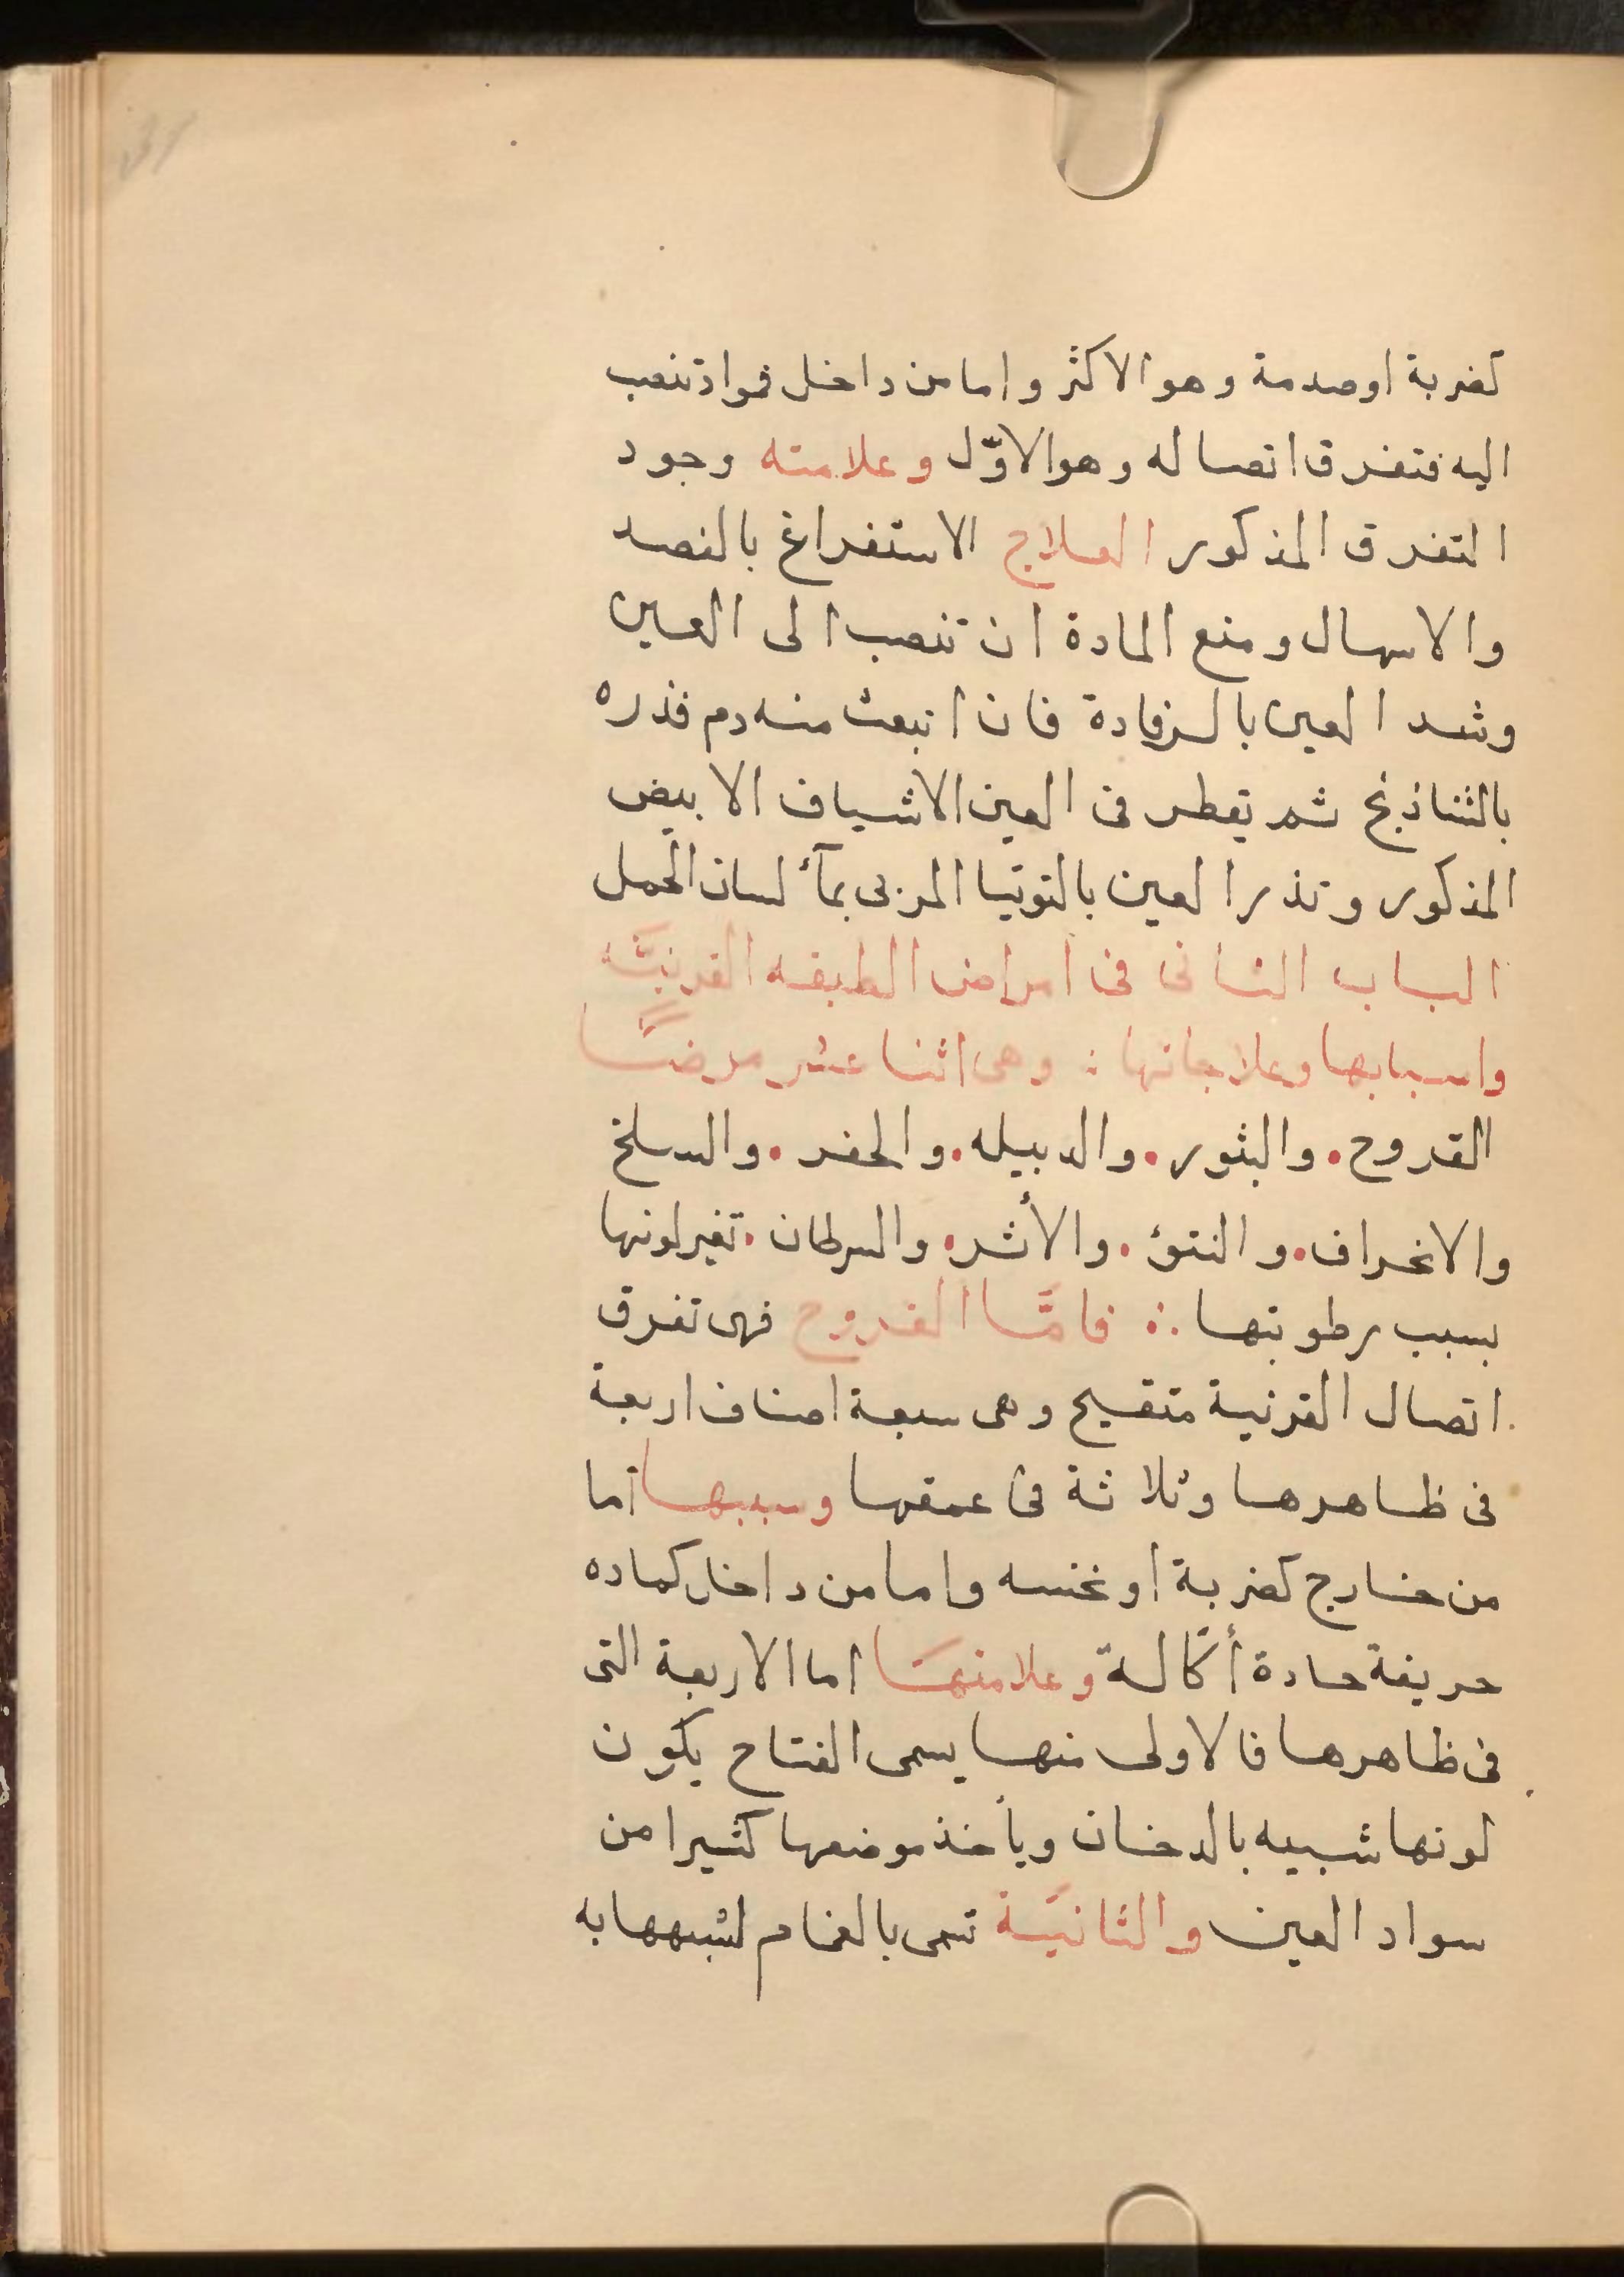 كضربة او صدمة وهو الاكثر واما من داخل فمواد تنصب
اليه فتفرق اتصاله وهو الاوّل وعلامته وجود
التفرق المذكور العلاج الاستفراغ بالفصد
والاسهال ومنع المادة ان تنصب الى العين
وشد العين بالرفادة فان انبعث منه دم فذره
بالشاذنج ثم تقطر فى العين الاشياف الابيض
المذكور وتذر العين بالتوتيا المربى بمآء لسان الحمل
الباب الثانى فى امراض الطبقه القرنيَّة
واسبابها وعلاجاتها : وهى اثنا عشر مرضًا
القروح . والبثور . والدبيله . والحفر . والسلخ
والانخراف . والنتوء . والأثر . والسرطان . تغير لونها
بسبب رطوبتها ∴ فامَّا القروح فهى تفرق
اتصال القرنية متقيح وهى سبعة اصناف اربعة
فى ظاهرها وثلاثة فى عمقها وسببها اما
من خارج كضربة او نخسه واما من داخل كماده
حريفة حادة أكّالة وعلامتها اما الاربعة التى
فى ظاهرها فالاولى منها يسمى القتاح يكون
لونها شبيه بالدخان ويأخذ موضعها كثيرا من
سواد العين والثانيَة تسمى بالغمام لشبهها به